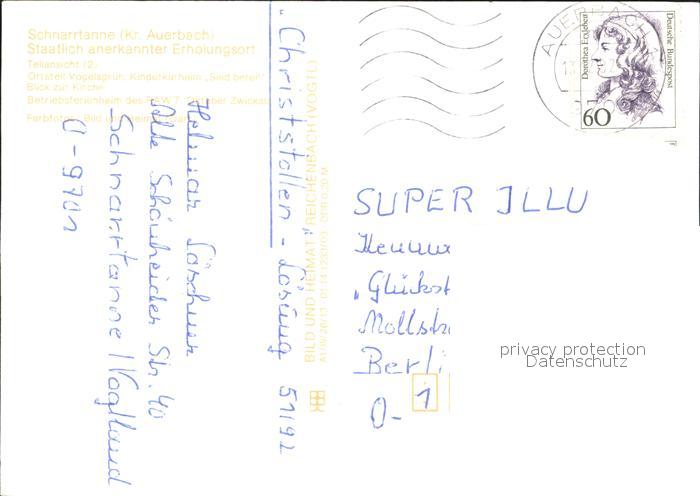 Schnarrtanne (Kr. Auerbach)
Staatlich anerkannter Erholungsort
Teilansicht (2)
Ortsteil Vogelsgrün, Kinderkurheim „Seid bereit"
Blick zur Kirche
Betriebsferienheim des
Zwickau
Farbfotos: Bild und Heimat
„Christstollen" - Lösung 51/92
Helmar
Alte Schönheider Str. 40
Schnarrtanne / Vogtland
O-9701
BILD UND HEIMAT REICHENBACH (VOGTL)
AUERBACH
Dorothea Erxleben
Deutsche Bundespost
60
SUPER ILLU
Kennw
„Glückst
Mollstr
Berli
O-1
privacy protection
Datenschutz